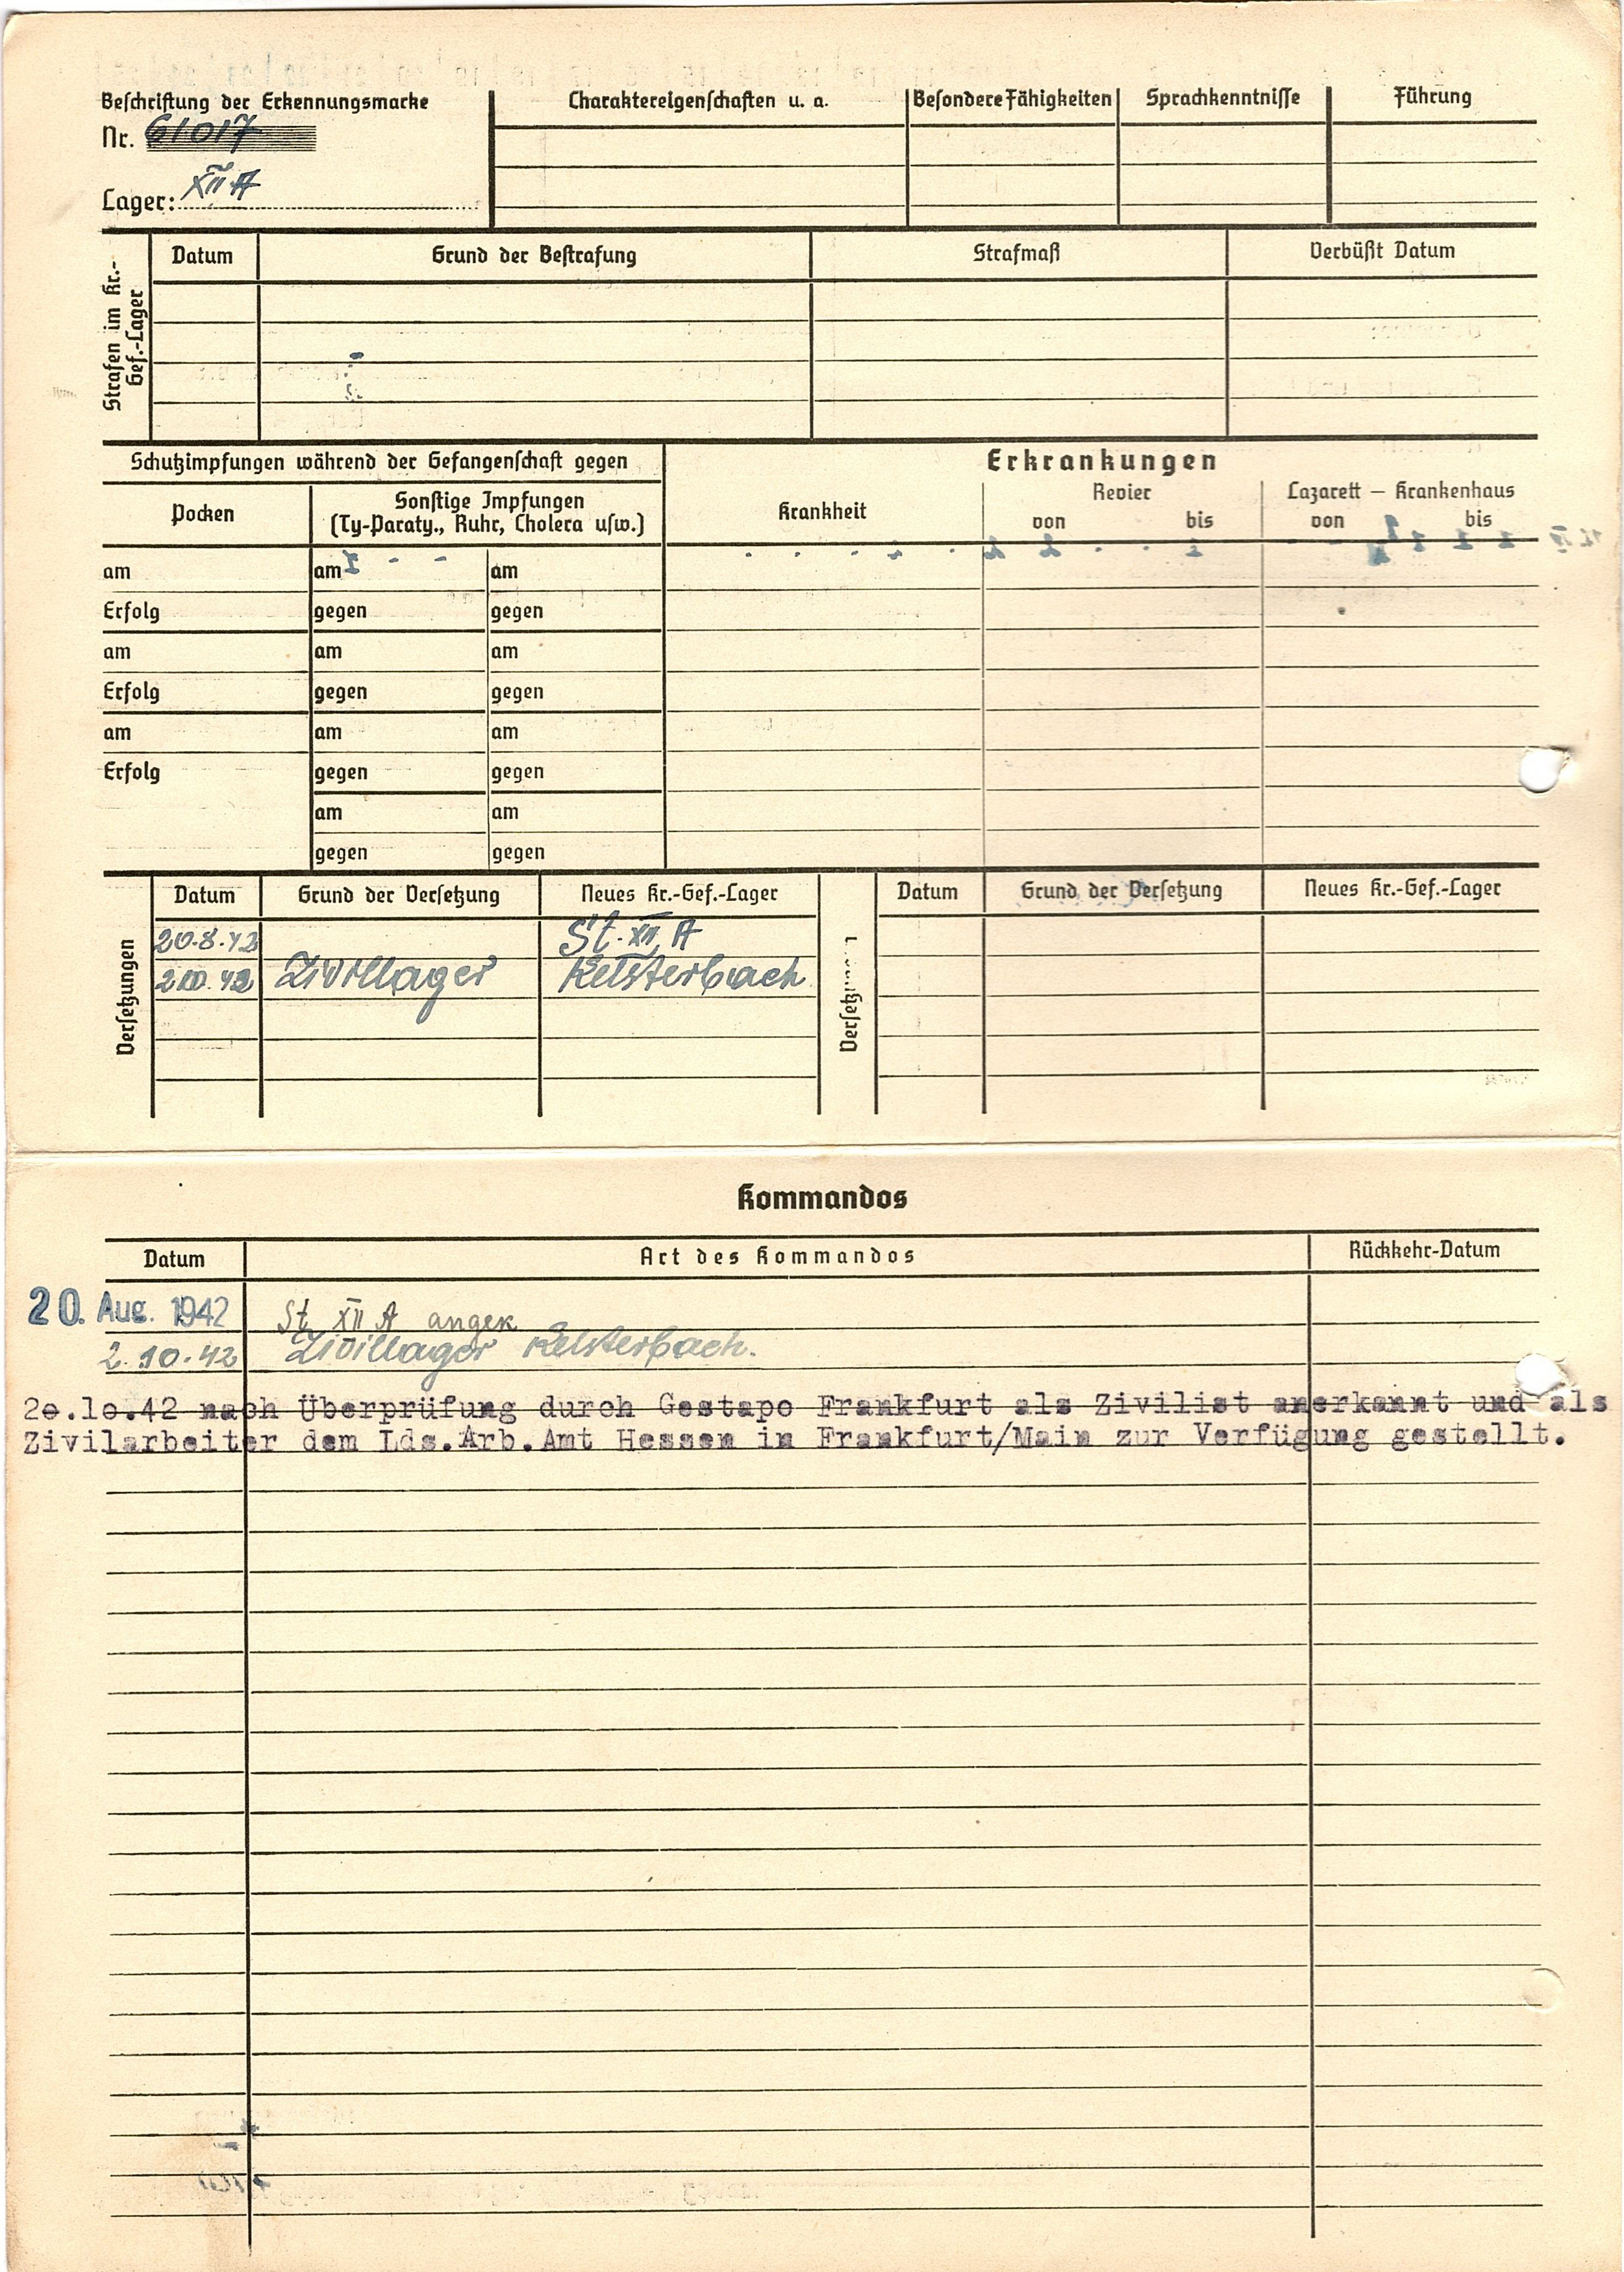 Beschriftung der Erkennungsmarke
Nr. 61017
Lager: XII A
Charaktereigenschaften u. a.
Besondere Fähigkeiten
Sprachkenntnisse
Führung
Strafen im Kr.-
Gef.-Lager
Datum
Grund der Bestrafung
Strafmaß
Verbüßt Datum
Schutzimpfungen während der Gefangenschaft gegen
Pocken
Sonstige Impfungen
(Ty-Paraty., Ruhr, Cholera usw.)
Erkrankungen
Krankheit
Revier
von bis
Lazarett – Krankenhaus
von bis
am am am
Erfolg gegen gegen
am am am
Erfolg gegen gegen
am am am
Erfolg gegen gegen
am am
gegen gegen
Versetzungen
Datum Grund der Versetzung Neues Kr.-Gef.-Lager
20.8.42 St. XII A
2.10.42 Zivillager Kelsterbach
Datum Grund der Versetzung Neues Kr.-Gef.-Lager
Kommandos
Datum Art des Kommandos Rückkehr-Datum
20. Aug. 1942 St XII A angek
2.10.42 Zivillager Kelsterbach.
2o.1o.42 nach Überprüfung durch Gestapo Frankfurt als Zivilist anerkannt und als
Zivilarbeiter dem Lds.Arb.Amt Hessen in Frankfurt/Main zur Verfügung gestellt.